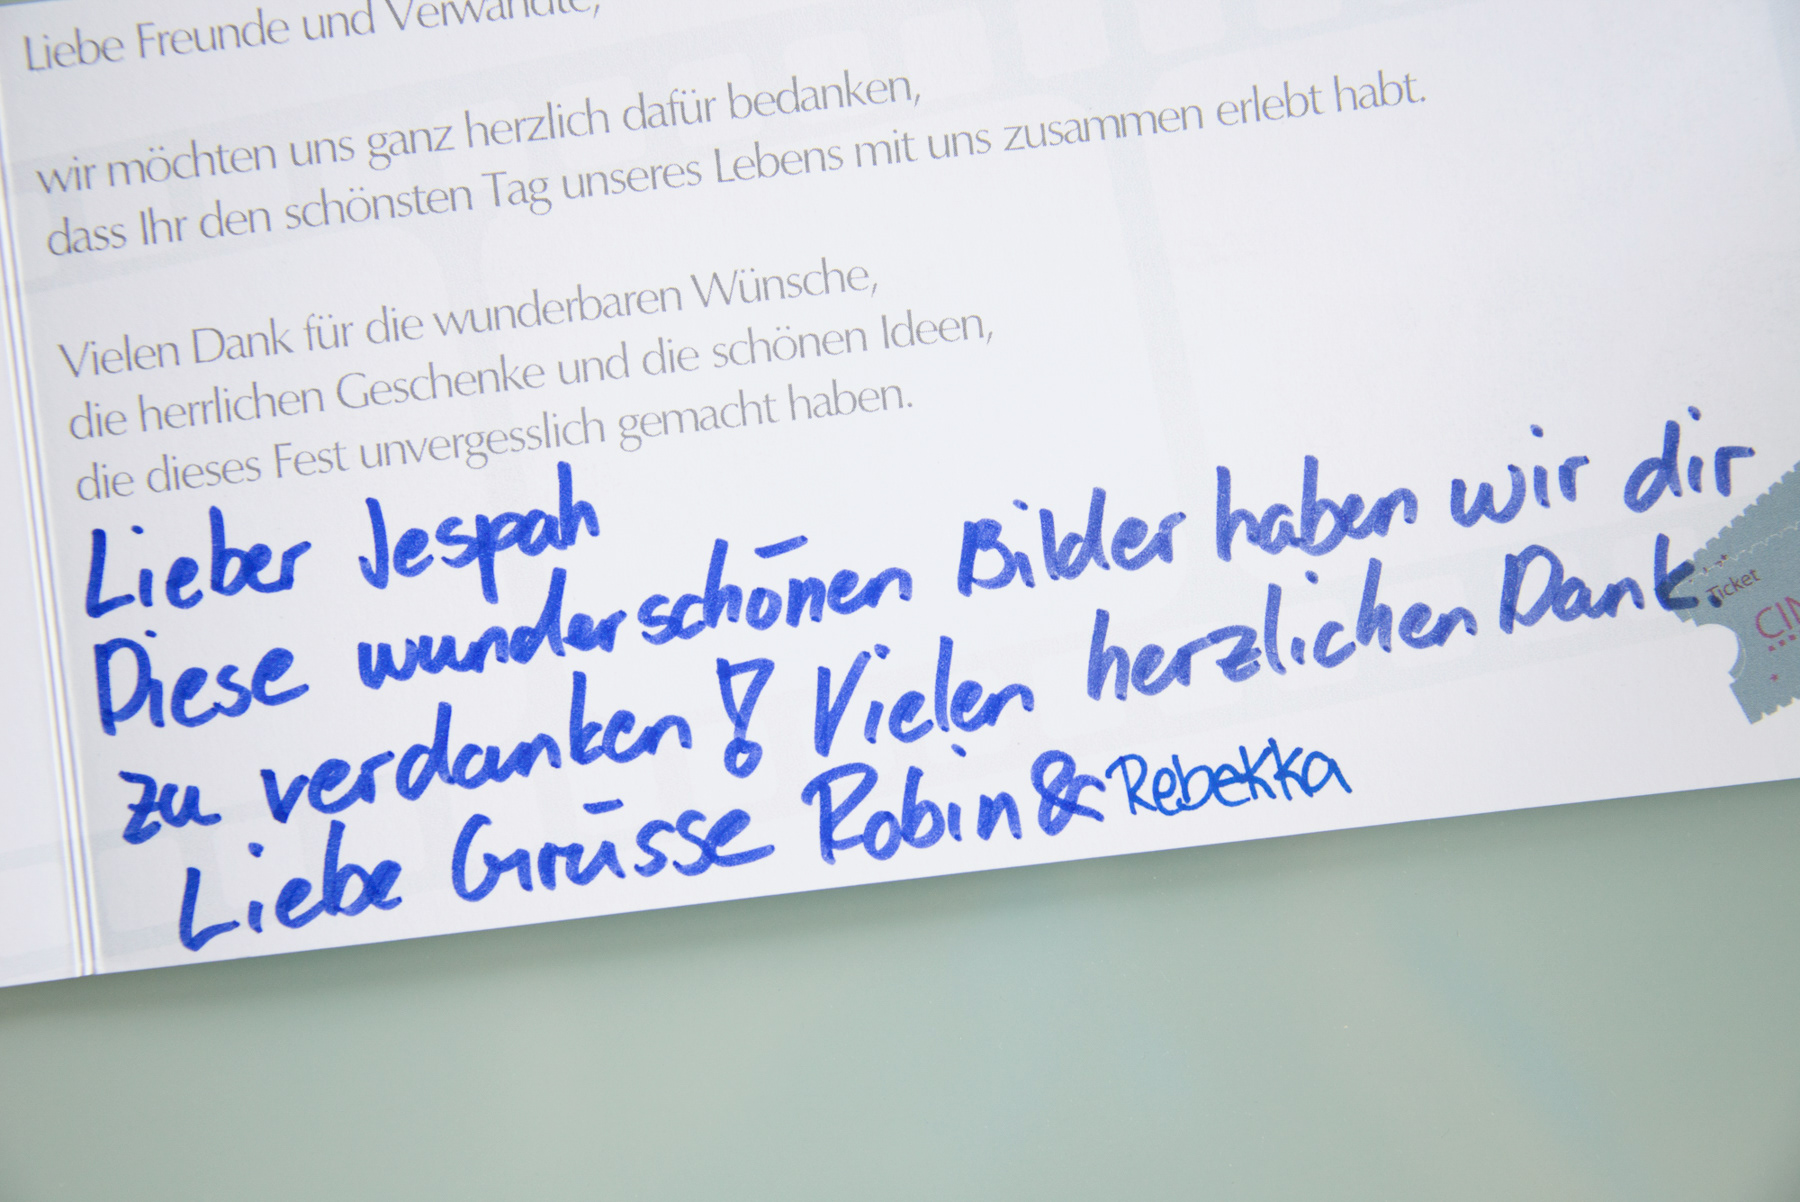 Liebe Freunde und Verwandte,
wir möchten uns ganz herzlich dafür bedanken,
dass Ihr den schönsten Tag unseres Lebens mit uns zusammen erlebt habt.
Vielen Dank für die wunderbaren Wünsche,
die herrlichen Geschenke und die schönen Ideen,
die dieses Fest unvergesslich gemacht haben.
Lieber Jespah
Diese wunderschönen Bilder haben wir dir
zu verdanken! Vielen herzlichen Dank.
Liebe Grüsse Robin & Rebekka
Ticket